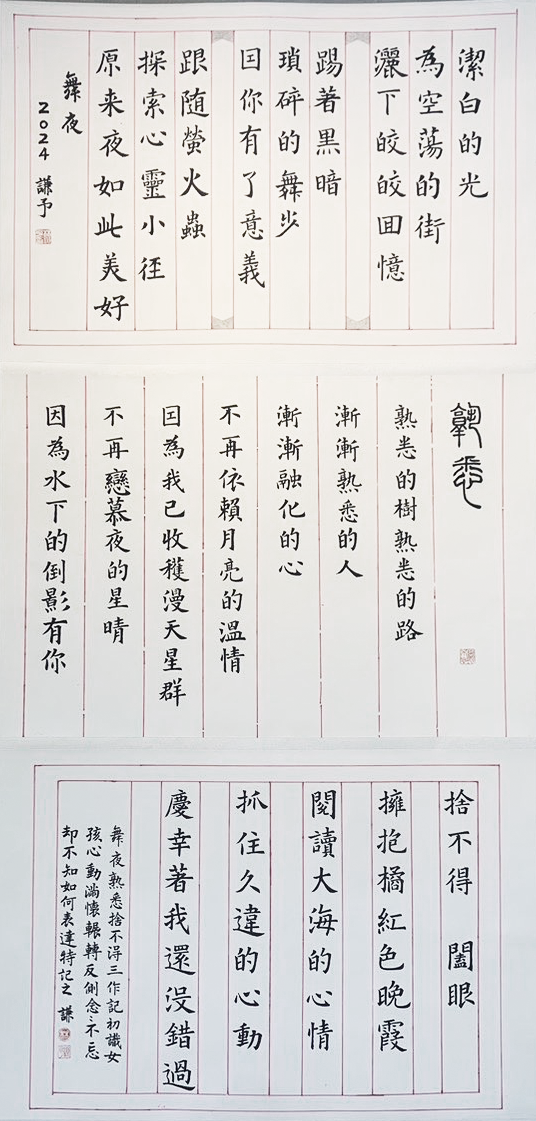 潔白的光
為空蕩的街
灑下皎皎回憶
踢著黑暗
瑣碎的舞步
因你有了意義
跟随螢火蟲
探索心靈小徑
原来夜如此美好
舞夜
2024 謙予
熟悉
熟悉的樹熟悉的路
漸漸熟悉的人
漸漸融化的心
不再依賴月亮的溫情
因為我已收穫漫天星群
不再戀慕夜的星晴
因為水下的倒影有你
捨不得 闔眼
擁抱橘紅色晚霞
閱讀大海的心情
抓住久違的心動
慶幸著我還没錯過
舞夜熟悉捨不得三作記初識女
孩心動滿懷輾轉反側念〻不忘
却不知如何表達特記之 謙